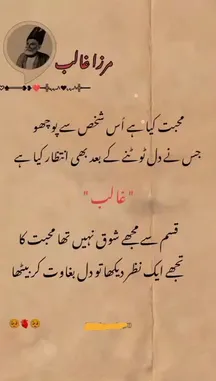 مرزا غالب
محبت کیا ہے اُس شخص سے پوچھو
جس نے دل ٹوٹنے کے بعد بھی انتظار کیا ہے
"غالب"
قسم سے مجھے شوق نہیں تھا محبت کا
تجھے ایک نظر دیکھا تو دل بغاوت کر بیٹھا